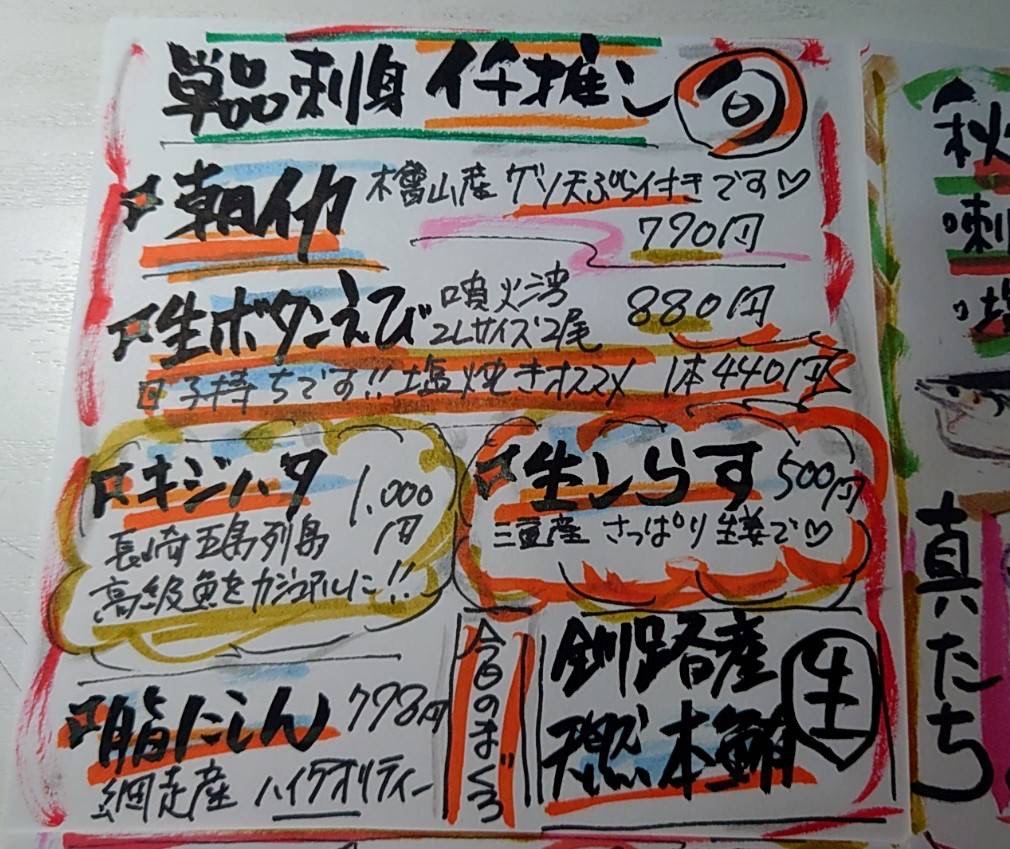 単品刺身イチ推し 旬
朝イカ 檜山産 ゲソ天ぷら付きです♡
790円
生ボタンえび 噴火湾 2Lサイズ2尾 880円
子持ちです!!塩焼きオススメ 1本440円
キジハタ 1,000円
長崎五島列島
高級魚をカジュアルに!!
生しらす 500円
三重産 さっぱり生姜で♡
脂にしん 798円
網走産 ハイクオリティー
今日のまぐろ
釧路産
天然本鮪
生
秋
刺
塩
真たち